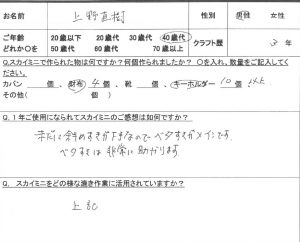 お名前 上野直樹 性別 男性 女性
ご年齢 20歳以下 20歳代 30歳代 40歳代 クラフト歴 3年
どれか〇を 50歳代 60歳代 70歳以上
Q.スカイミニで作られた物は何ですか？何個作られましたか？ 〇を入れ、数量をご記入してください。
カバン 個、財布 4個、靴 個、キーホルダー 10個
その他( 個 )
Q.１年ご使用になられてスカイミニのご感想は如何ですか？
まだに斜めすきが下手なのでベタすきがメインです。
ベタすきは非常に助かります。
Q. スカイミニをどの様な漉き作業に活用されていますか？
上記